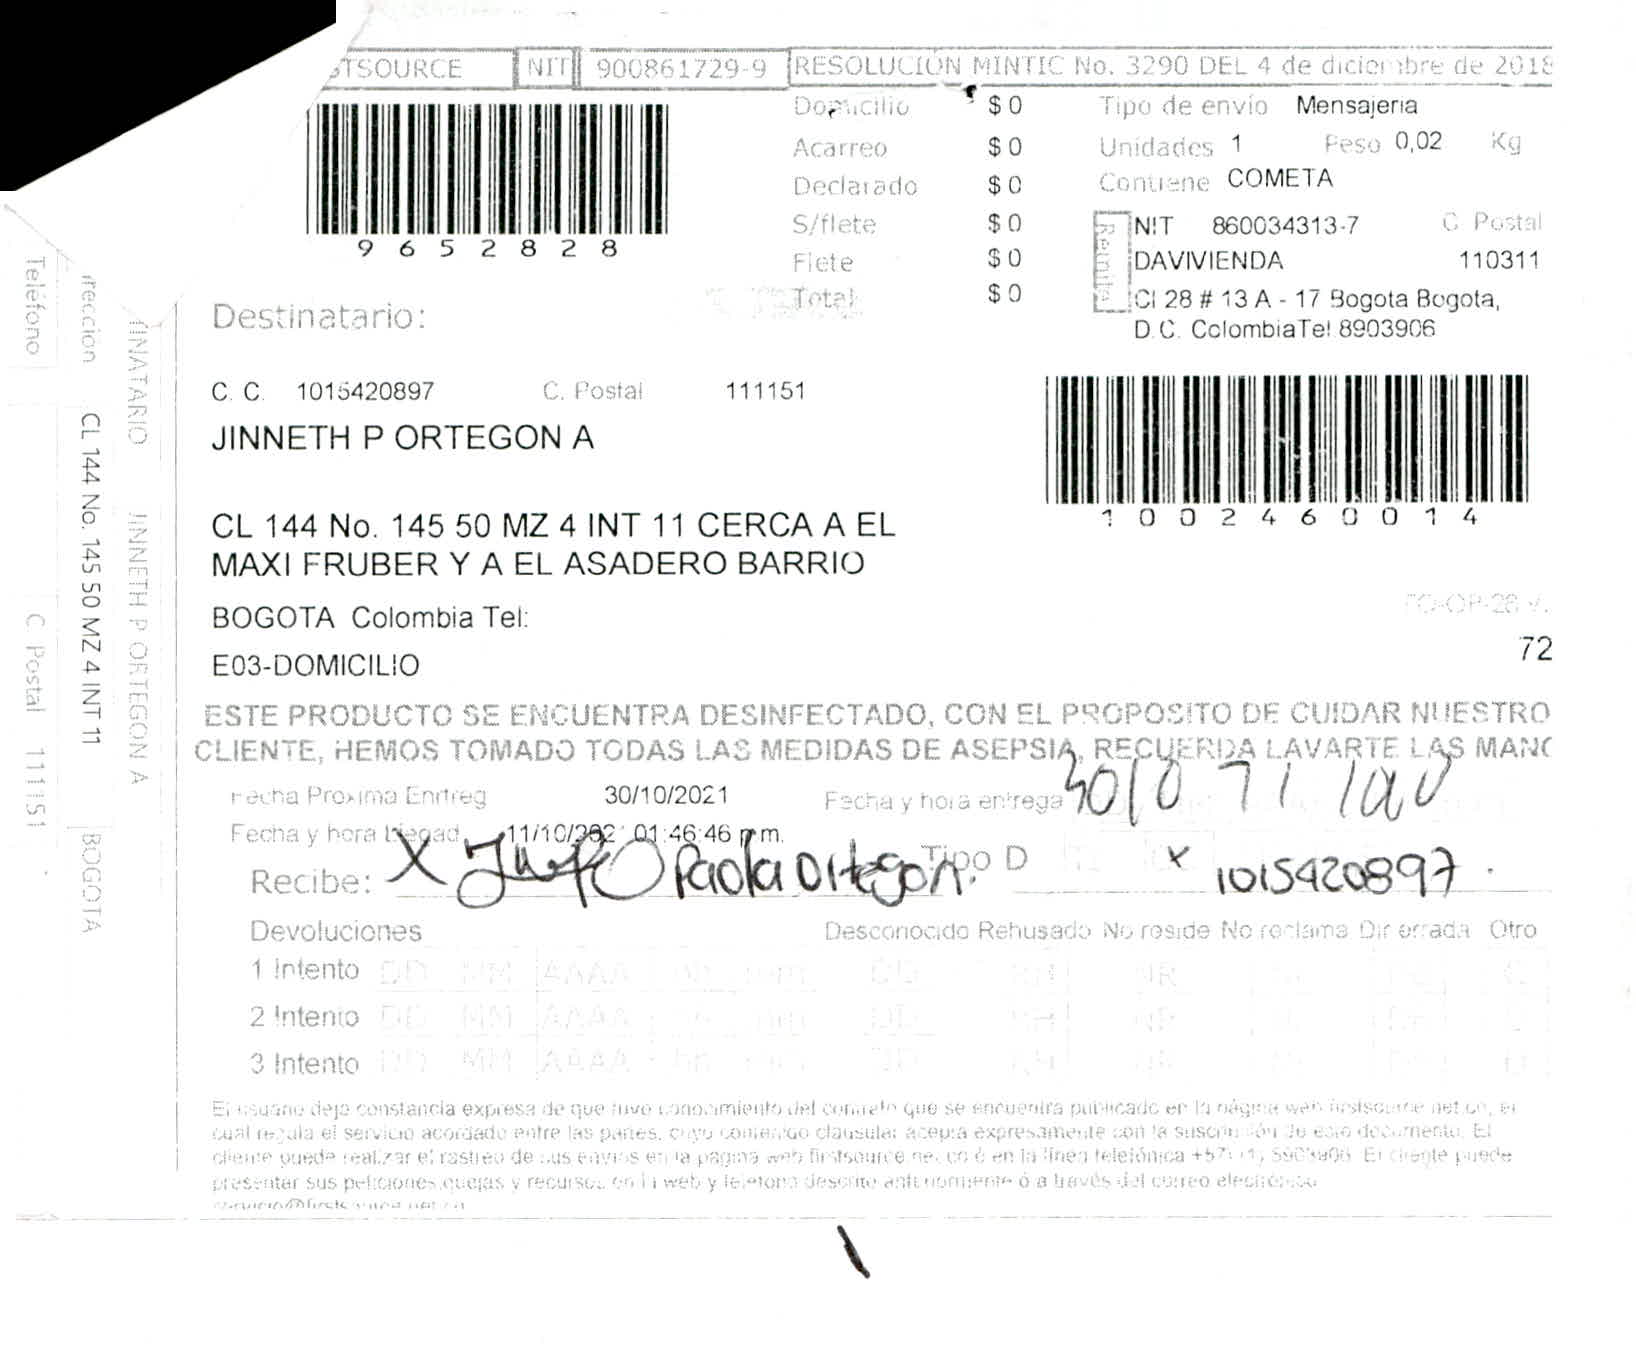 STSOURCE NIT 900861729-9 RESOLUCION MINTIC No. 3290 DEL 4 de diciembre de 2018
9652828
Domicilio $ 0
Acarreo $ 0
Declarado $ 0
S/flete $ 0
Flete $ 0
Total $ 0
Tipo de envío Mensajeria
Unidades 1 Peso 0,02 Kg
Contiene COMETA
Remite
NIT 860034313-7 C. Postal
DAVIVIENDA 110311
Cl 28 # 13 A - 17 Bogota Bogota,
D.C. ColombiaTel 8903906
Destinatario:
C. C. 1015420897 C. Postal 111151
JINNETH P ORTEGON A
1002460014
CL 144 No. 145 50 MZ 4 INT 11 CERCA A EL
MAXI FRUBER Y A EL ASADERO BARRIO
BOGOTA Colombia Tel:
E03-DOMICILIO
FO-OP-28 V.
72
ESTE PRODUCTO SE ENCUENTRA DESINFECTADO, CON EL PROPOSITO DE CUIDAR NUESTRO
CLIENTE, HEMOS TOMADO TODAS LAS MEDIDAS DE ASEPSIA, RECUERDA LAVARTE LAS MANO
Fecha Proxima Enrtreg 30/10/2021 Fecha y hora entrega
Fecha y hora llegad 11/10/202 01:46:46 p.m.
Recibe: X Paola Ortegon. Tipo D x 1015420897.
Devoluciones Desconocido Rehusado No reside No reclama Dir errada Otro
1 Intento DD MM AAAA hh mm DD RH NR O
2 Intento DD MM AAAA hh mm DD RH NR O
3 Intento DD MM AAAA hh mm DD RH NR O
El usuario deja constancia expresa de que tuvo conocimiento del contrato que se encuentra publicado en la página web firstsource.net.co, el
cual regula el servicio acordado entre las partes, cuyo contenido clausular acepta expresamente con la suscripción de este documento. El
cliente puede realizar el rastreo de sus envíos en la página web firstsource.net.co ó en la línea telefónica El cliente puede
presentar sus peticiones,quejas y recursos en la web y telefono descrito anteriormente ó a través del correo electrónico
servicio@firstsource.net.co
Teléfono C. Postal 111151
irección CL 144 No. 145 50 MZ 4 INT 11 BOGOTA
TINATARIO JINNETH P ORTEGON A